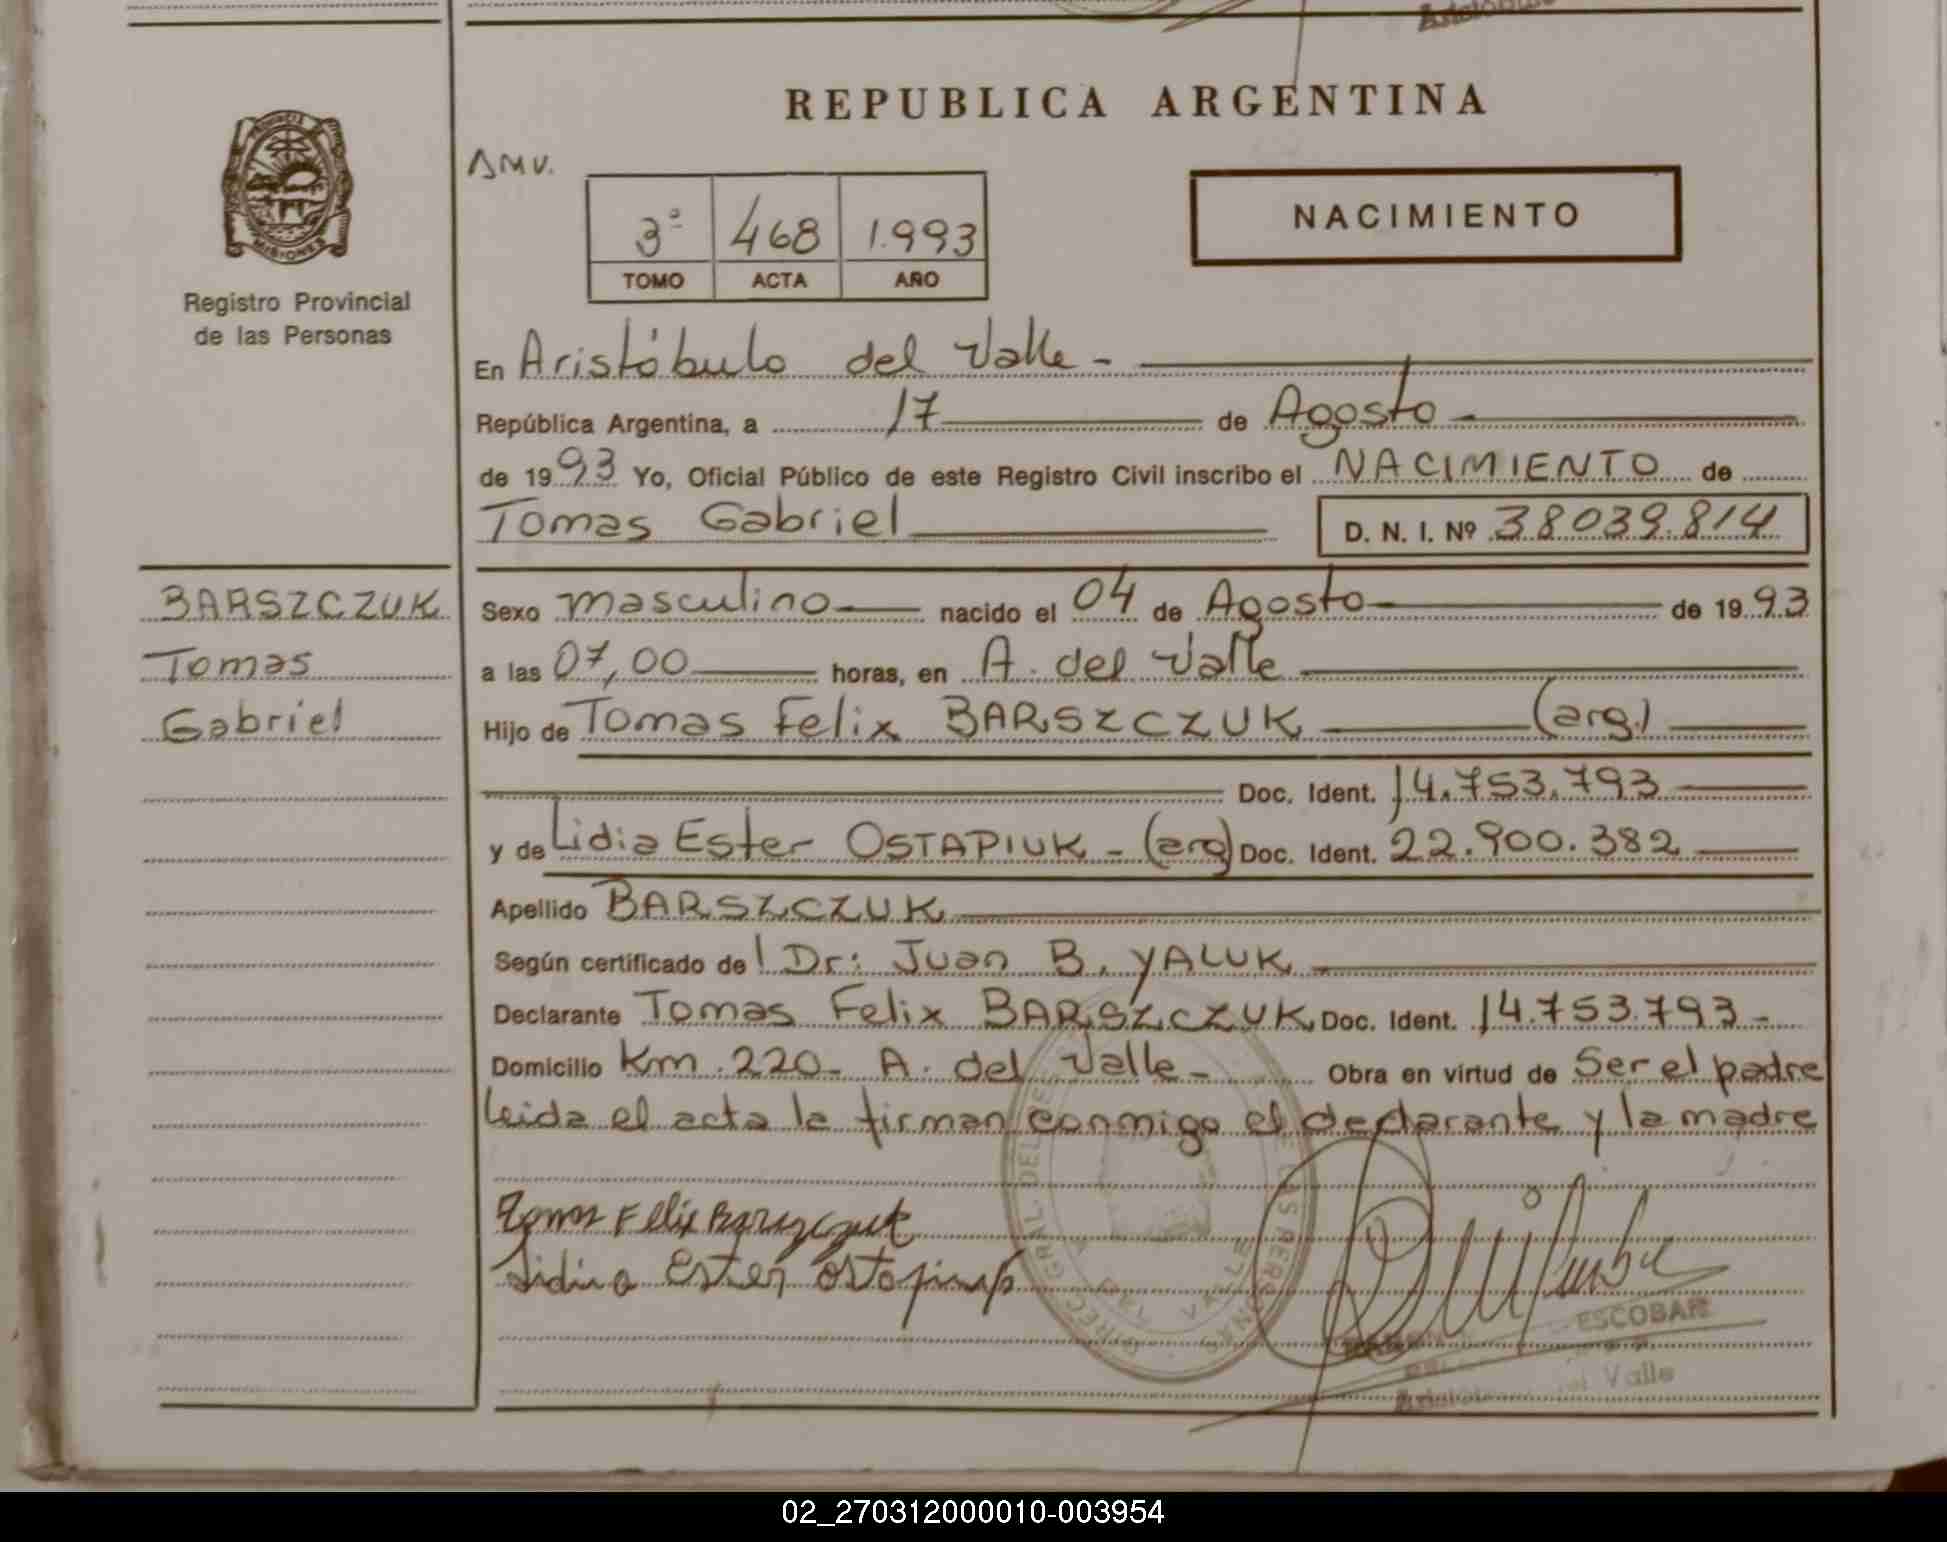 REPUBLICA ARGENTINA
PROVINCIA
MISIONES
Registro Provincial
de las Personas
3º 468 1.993
TOMO ACTA AÑO
NACIMIENTO
En Aristóbulo del Valle -
República Argentina, a 17 de Agosto
de 1993 Yo, Oficial Público de este Registro Civil inscribo el NACIMIENTO de
Tomas Gabriel D. N. I. Nº 38039.814
BARSZCZUK
Tomas
Gabriel
Sexo masculino nacido el 04 de Agosto de 1993
a las 07,00 horas, en A. del Valle
Hijo de Tomas Felix BARSZCZUK (arg.)
Doc. Ident. 14.753.793
y de Lidia Ester OSTAPIUK - (arg) Doc. Ident. 22.900.382
Apellido BARSZCZUK
Según certificado del Dr: Juan B. YALUK
Declarante Tomas Felix BARSZCZUK Doc. Ident. 14.753.793-
Domicilio Km. 220- A. del Valle- Obra en virtud de Ser el padre
leida el acta la firman conmigo el declarante y la madre
Tomas Felix Barszczuk
Lidia Ester Ostapiuk
ESCOBAR
del Valle
02_270312000010-003954